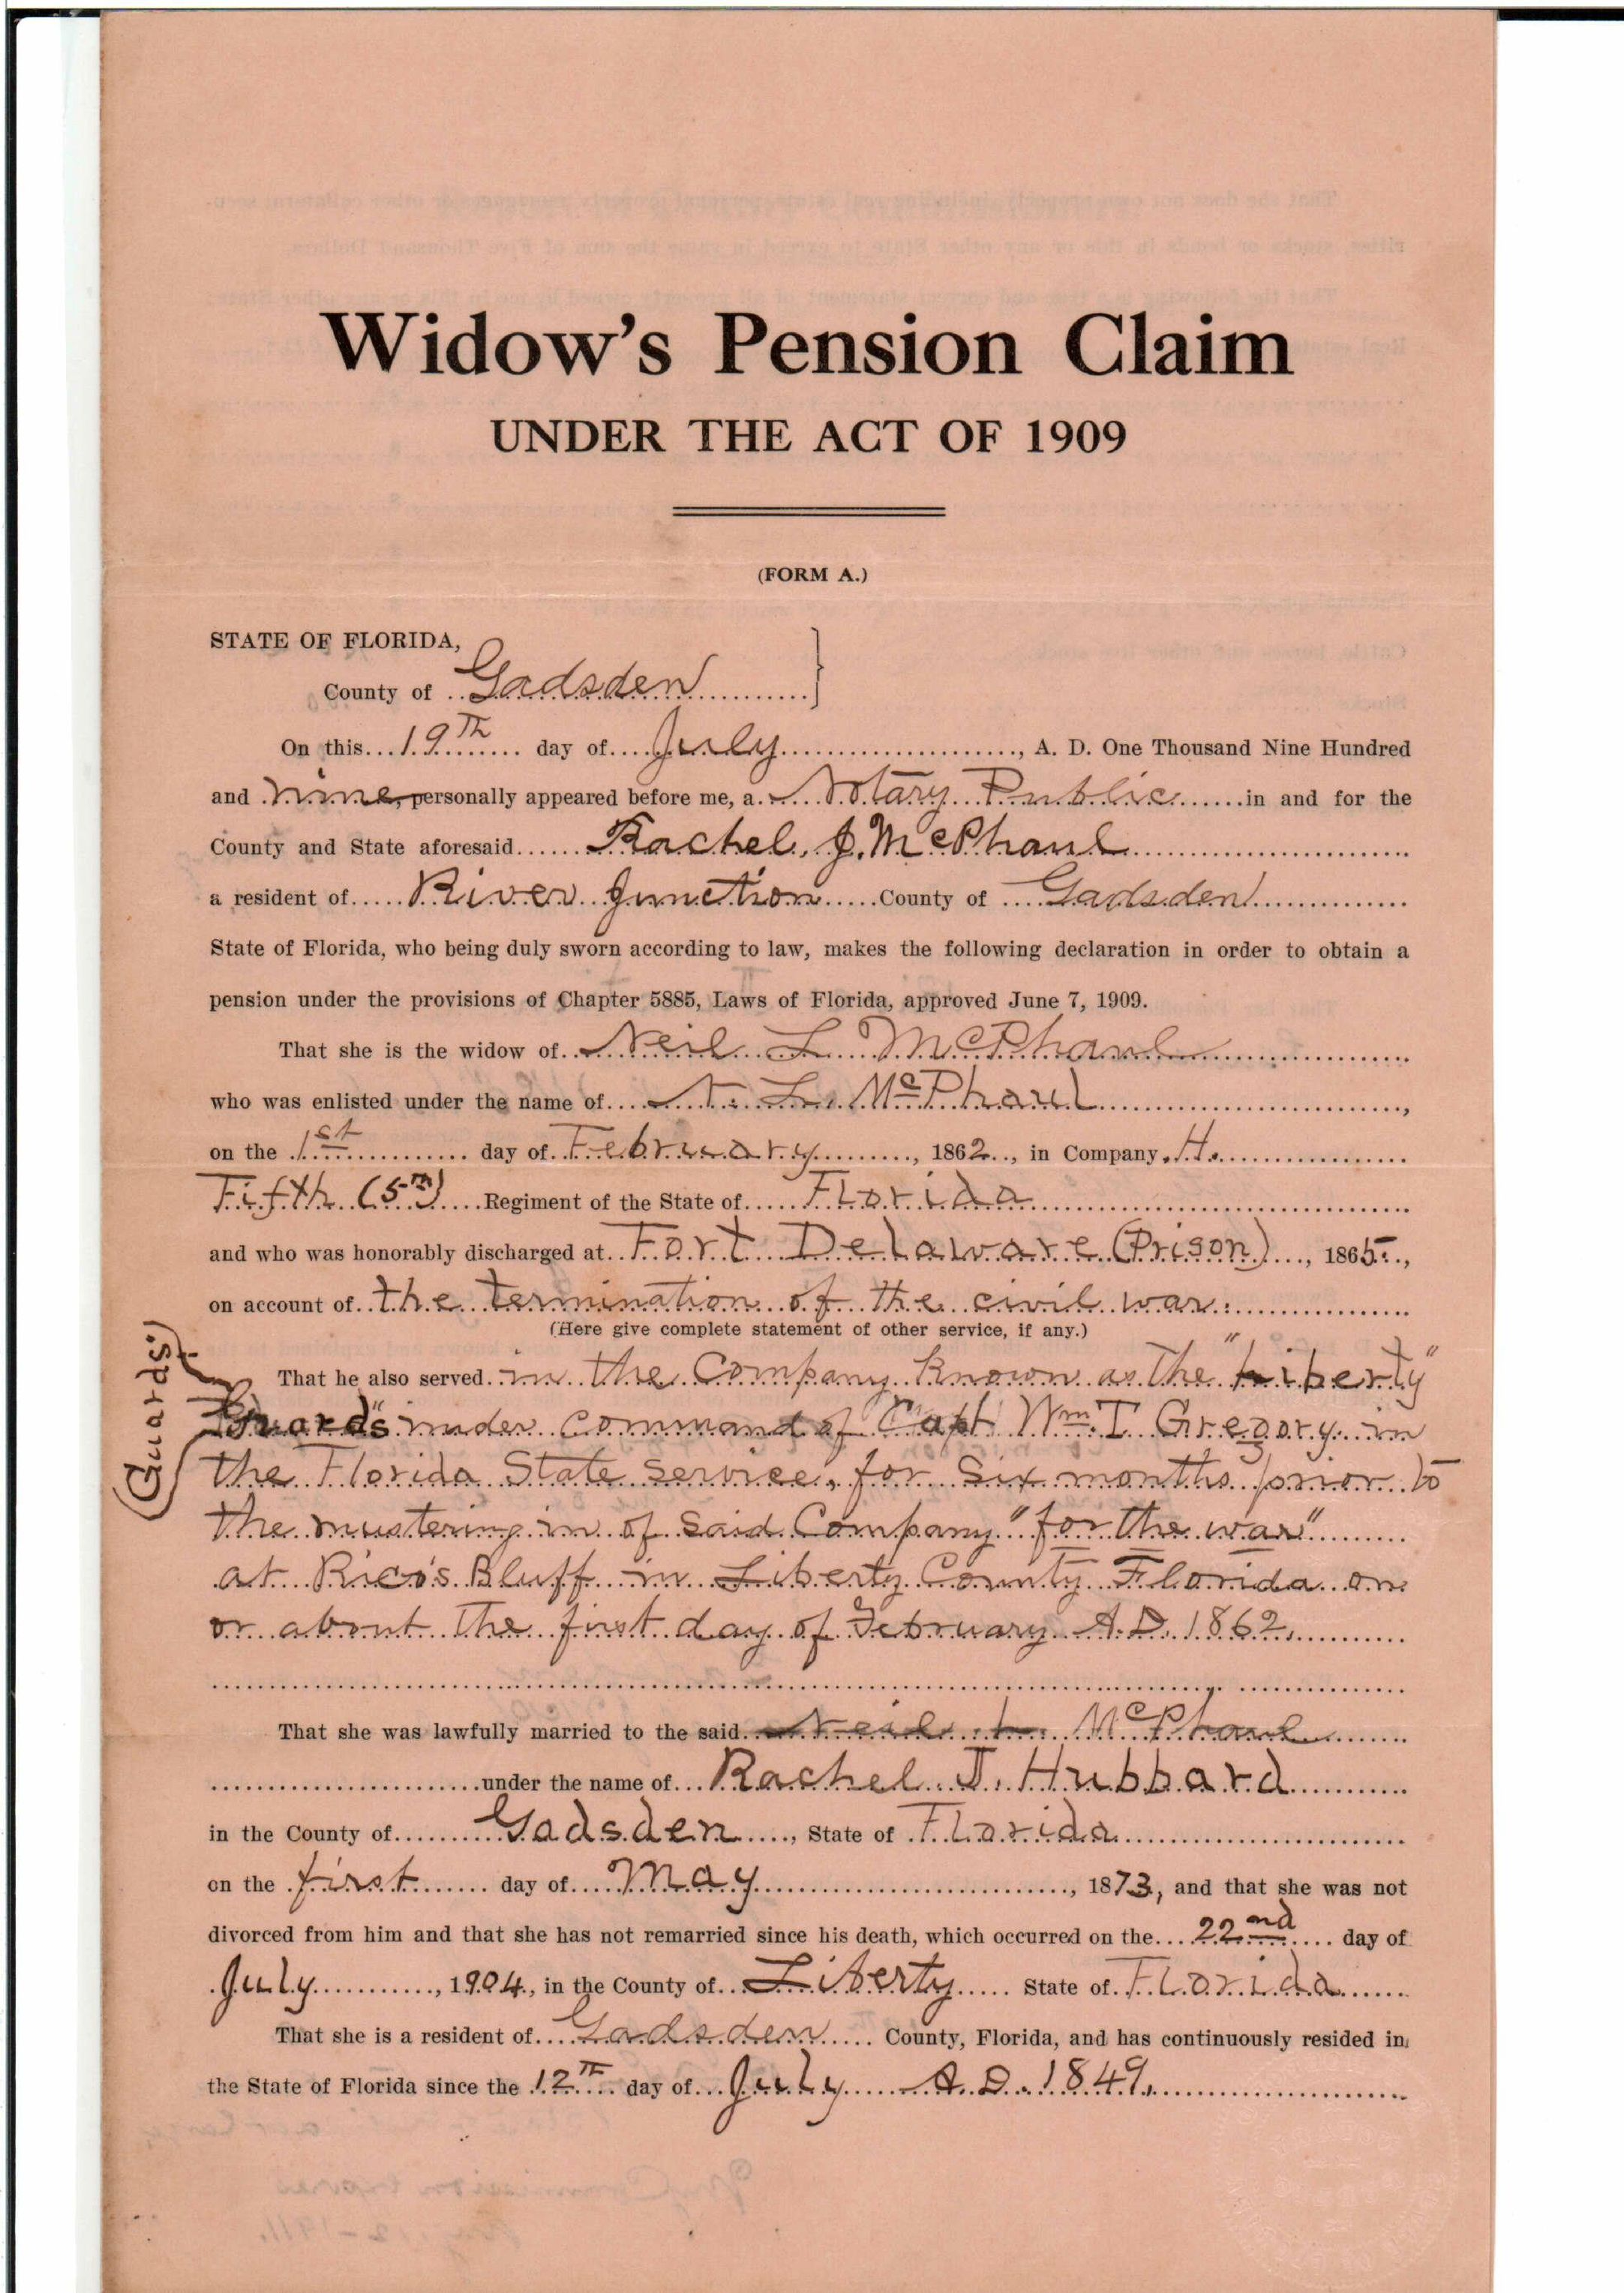 Widow's Pension Claim
UNDER THE ACT OF 1909
(FORM A.)
STATE OF FLORIDA,
County of Gadsden
On this 19th day of July, A. D. One Thousand Nine Hundred
and nine, personally appeared before me, a Notary Public in and for the
County and State aforesaid Rachel J. McPhaul
a resident of River Junction County of Gadsden
State of Florida, who being duly sworn according to law, makes the following declaration in order to obtain a
pension under the provisions of Chapter 5885, Laws of Florida, approved June 7, 1909.
That she is the widow of Neil L McPhaul
who was enlisted under the name of N. L. McPhaul,
on the 1st day of February, 1862, in Company H.
Fifth (5th) Regiment of the State of Florida
and who was honorably discharged at Fort Delaware (Prison), 1865,
on account of the termination of the civil war.
(Here give complete statement of other service, if any.)
That he also served in the Company known as the "Liberty"
(Guards)
Guards" under command of Capt Wm T Gregory in
the Florida State service, for six months prior to
the mustering in of said Company "for the war"
at Rico's Bluff in Liberty County Florida on
or about the first day of February A.D. 1862.
That she was lawfully married to the said Neil L. McPhaul
under the name of Rachel J. Hubbard
in the County of Gadsden, State of Florida
on the first day of May, 1873, and that she was not
divorced from him and that she has not remarried since his death, which occurred on the 22nd day of
July, 1904, in the County of Liberty State of Florida
That she is a resident of Gadsden County, Florida, and has continuously resided in
the State of Florida since the 12th day of July A.D. 1849.